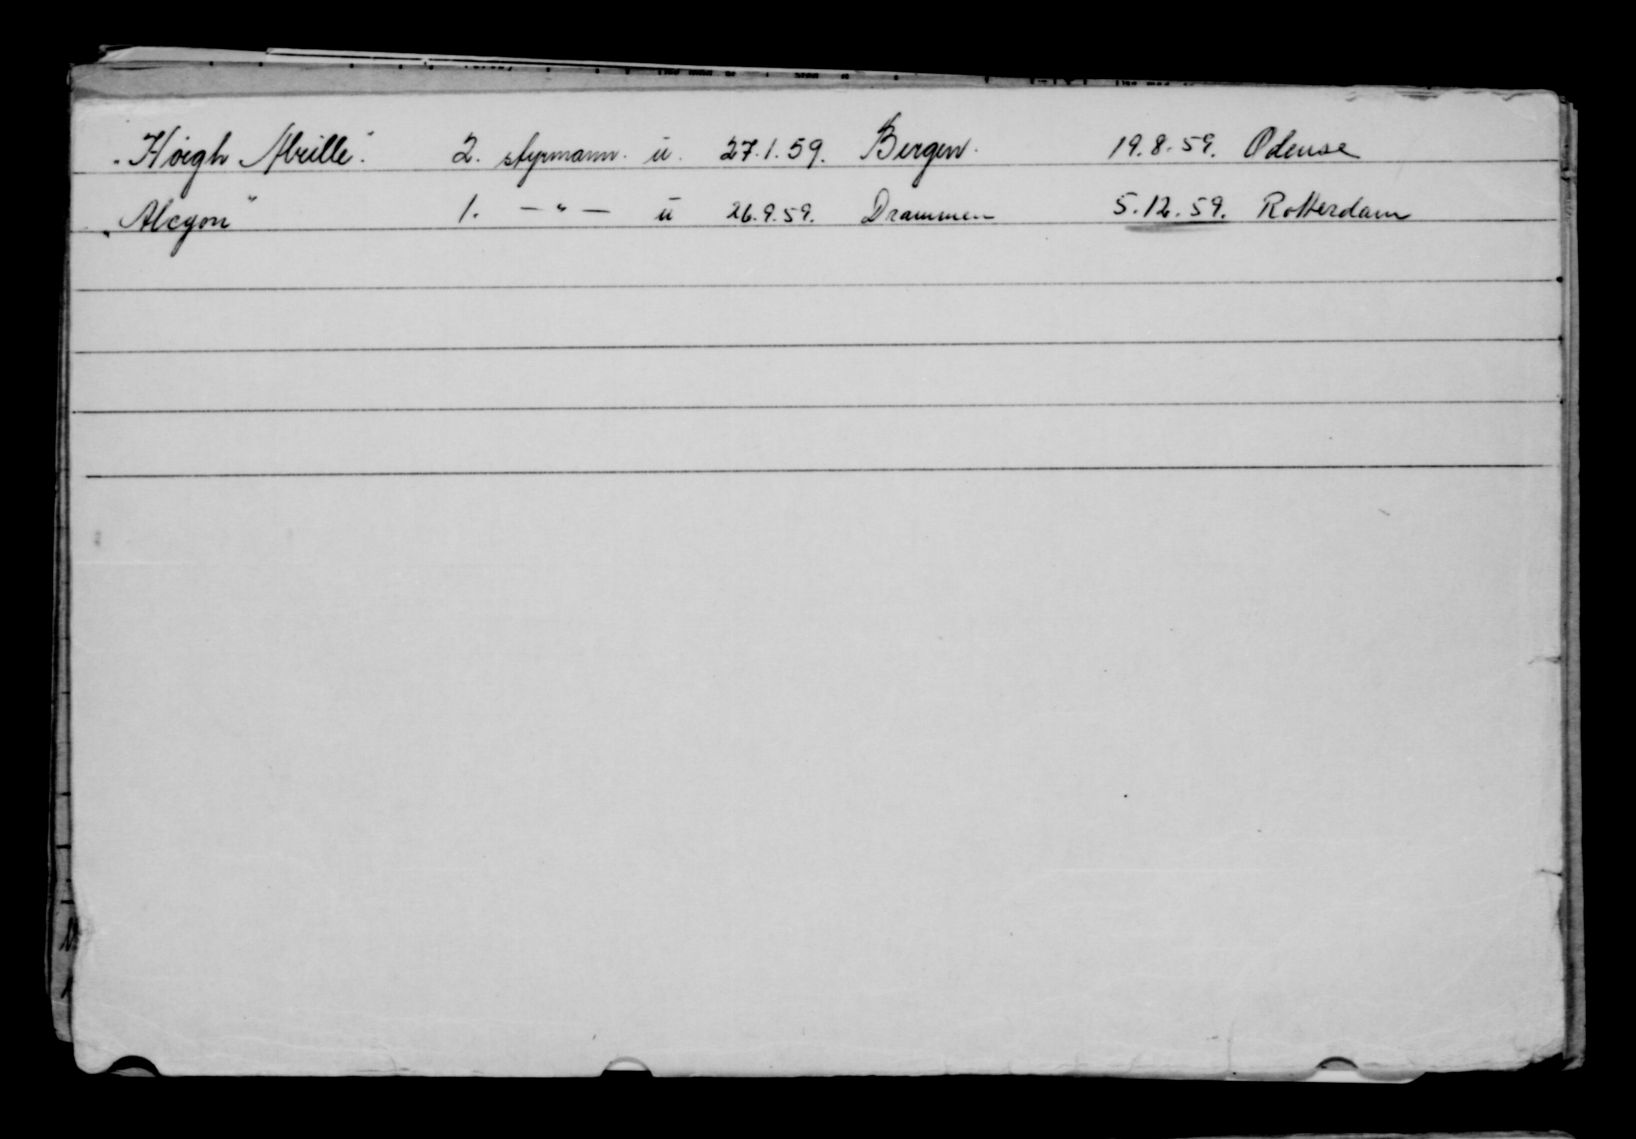 "Höegh Mbrille". 2. styrmann. u. 27.1.59. Bergen. 19.8.59. Odense
"Alcyon" 1. — " — u 26.9.59. Drammen 5.12.59. Rotterdam